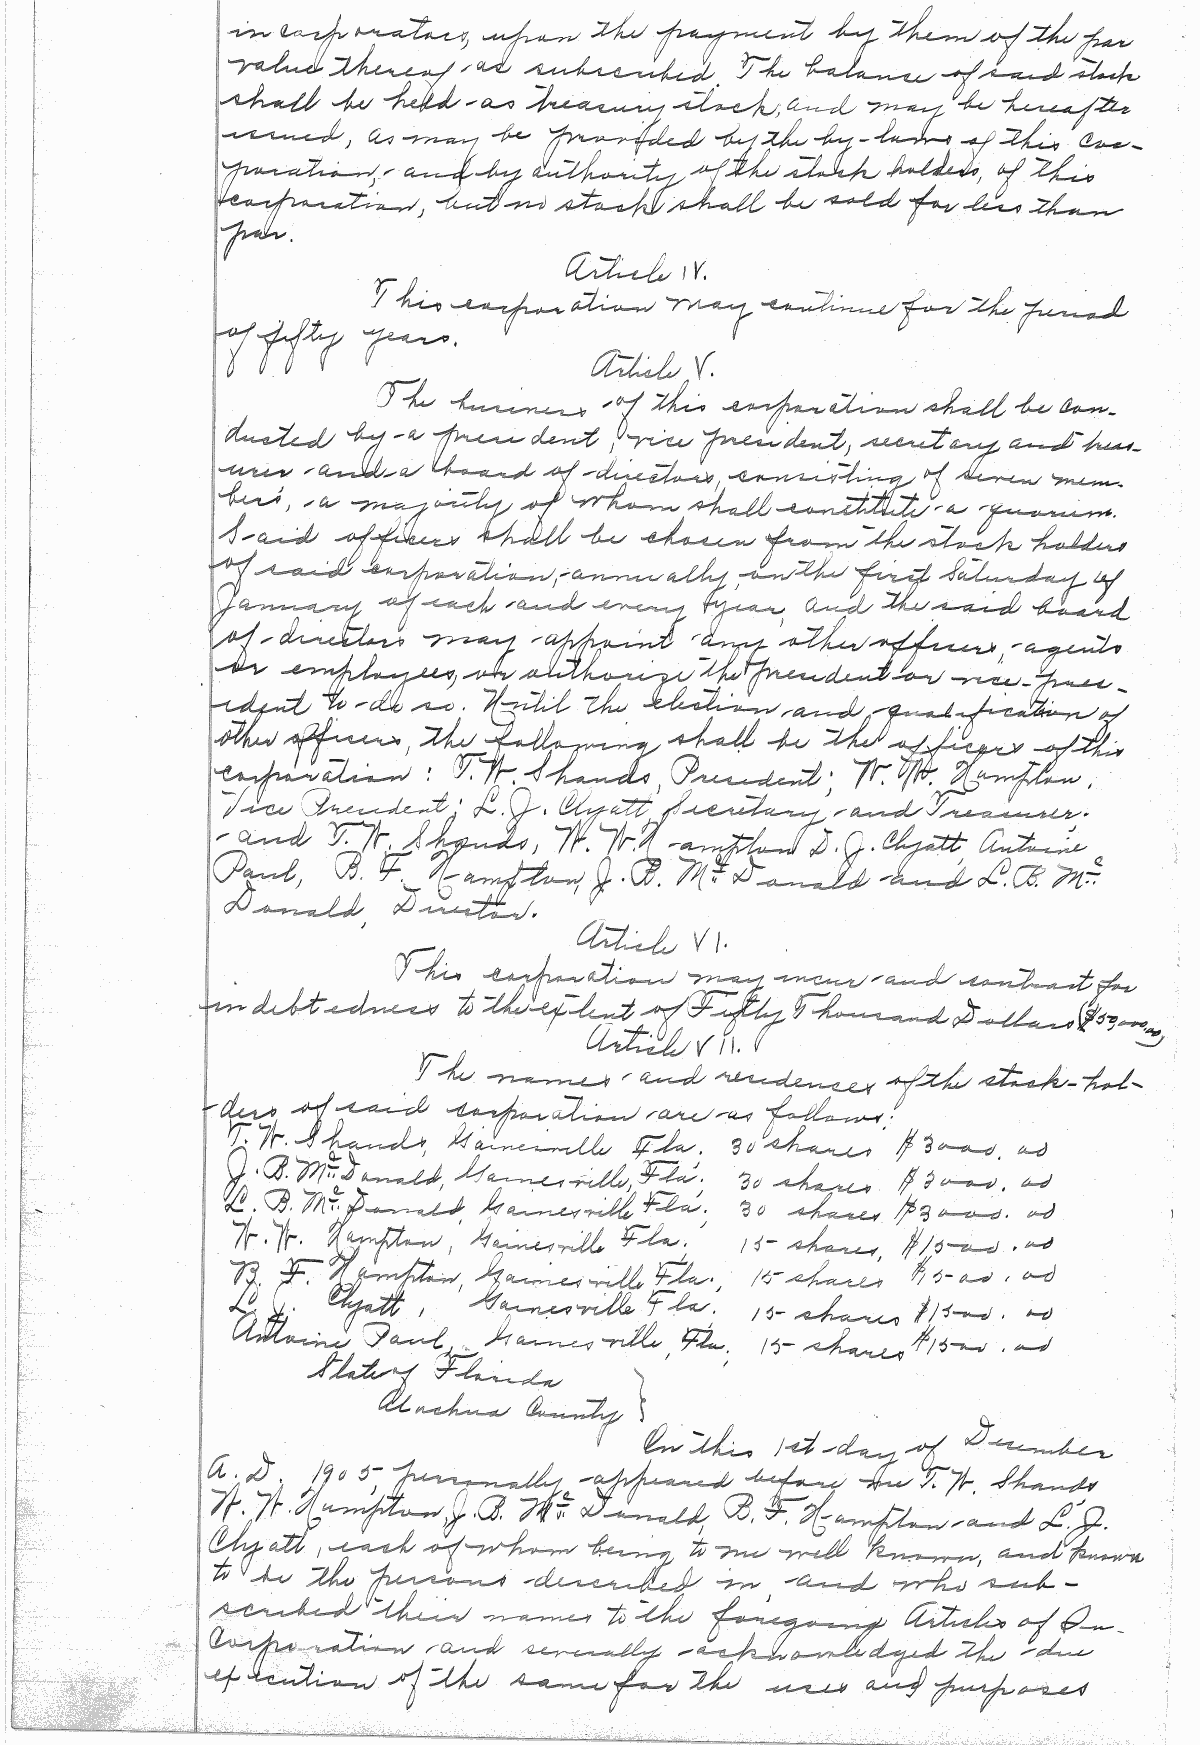 incorporators, upon the payment by them of the par
value thereof as subscribed. The balance of said stock
shall be held as treasury stock, and may be hereafter
issued, as may be provided by the by-laws of this cor-
poration, and by authority of the stock holders, of this
corporation, but no stock shall be sold for less than
par.
Article IV.
This corporation may continue for the period
of fifty years.
Article V.
The business of this corporation shall be con-
ducted by a president, vice president, secretary and treas-
urer and a board of directors, consisting of seven mem-
bers, a majority of whom shall constitute a quorum.
Said officers shall be chosen from the stock holders
of said corporation, annually, on the first Saturday of
January of each and every year, and the said board
of directors may appoint any other officers, agents
or employees, or authorize the president or vice-pres-
ident to do so. Until the election and qualification of
other officers, the following shall be the officers of this
corporation: T. W. Shands, President; W. W. Hampton,
Vice President; L. J. Clyatt, Secretary and Treasurer;
and T. W. Shands, W. W. Hampton D. J. Clyatt, Antoine
Paul, B. F. Hampton, J. B. Mc Donald and L. B. Mc
Donald, Director.
Article VI.
This corporation may incur and contract for
indebtedness to the extent of Fifty Thousand Dollars ($50,000.00)
Article VII.
The names and residences of the stock-hol-
ders of said corporation are as follows:
T. W. Shands, Gainesville Fla. 30 shares $3000.00
J. B. Mc Donald, Gainesville, Fla; 30 shares $3000.00
L. B. Mc Donald, Gainesville Fla; 30 shares $3000.00
W. W. Hampton, Gainesville Fla; 15 shares, $1500.00
B. F. Hampton, Gainesville Fla., 15 shares $1500.00
L. J. Clyatt, Gainesville Fla. 15 shares $1500.00
Antoine Paul, Gainesville, Fla; 15 shares $1500.00
State of Florida
Alachua County
On this 1st day of December
A. D. 1905, personally appeared before me T. W. Shands
W. W. Hampton, J. B. Mc Donald, B. F. Hampton and L. J.
Clyatt, each of whom being to me well known, and known
to be the persons described in, and who sub-
scribed their names to the foregoing Articles of In-
corporation and severally acknowledged the due
execution of the same for the uses and purposes